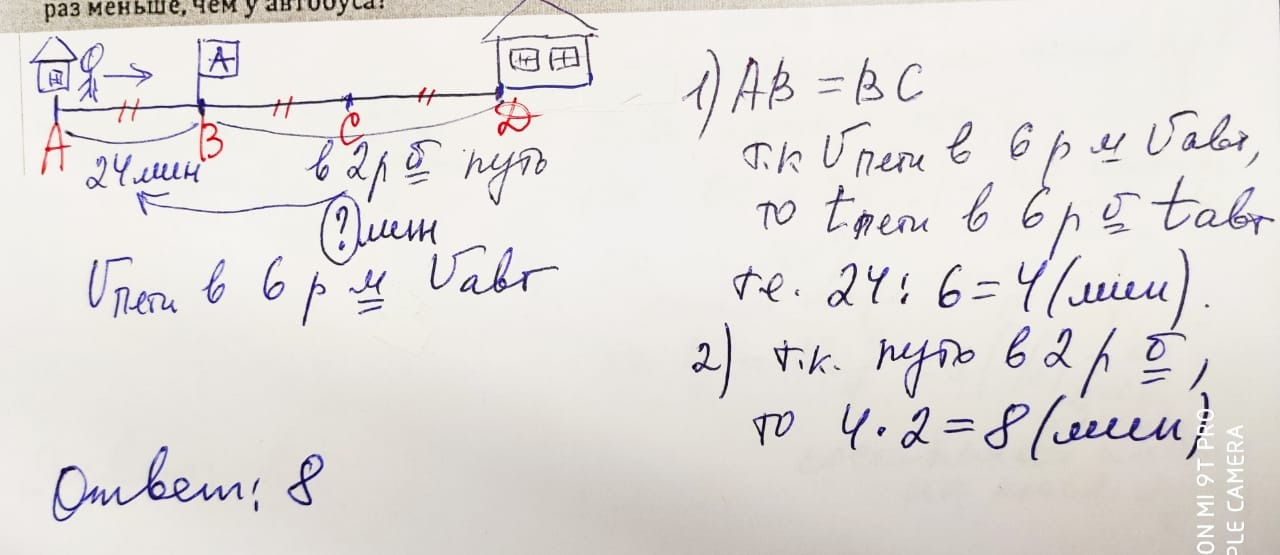 раз меньше, чем у автобуса?
A
A B C D
24мин в 2 р б путь
? мин
Vпети в 6 р м Vавт
Ответ: 8
1) AB = BC
т.к Vпети в 6 р м Vавт,
то tпети в 6 р б tавт
т.е. 24 : 6 = 4 (мин).
2) т.к. путь в 2 р б,
то 4 · 2 = 8 (мин)
ON MI 9T PRO
PLE CAMERA